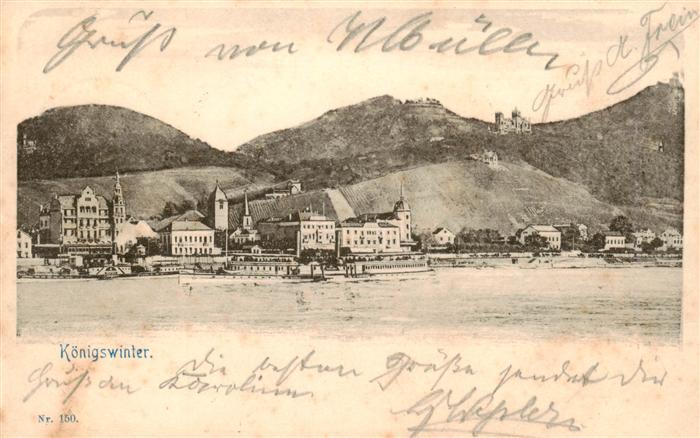 Gruß von W Müller
Gruß A. Frein
Königswinter.
Gruß an Karolin
die besten Grüße sendet dir
Nr. 150.